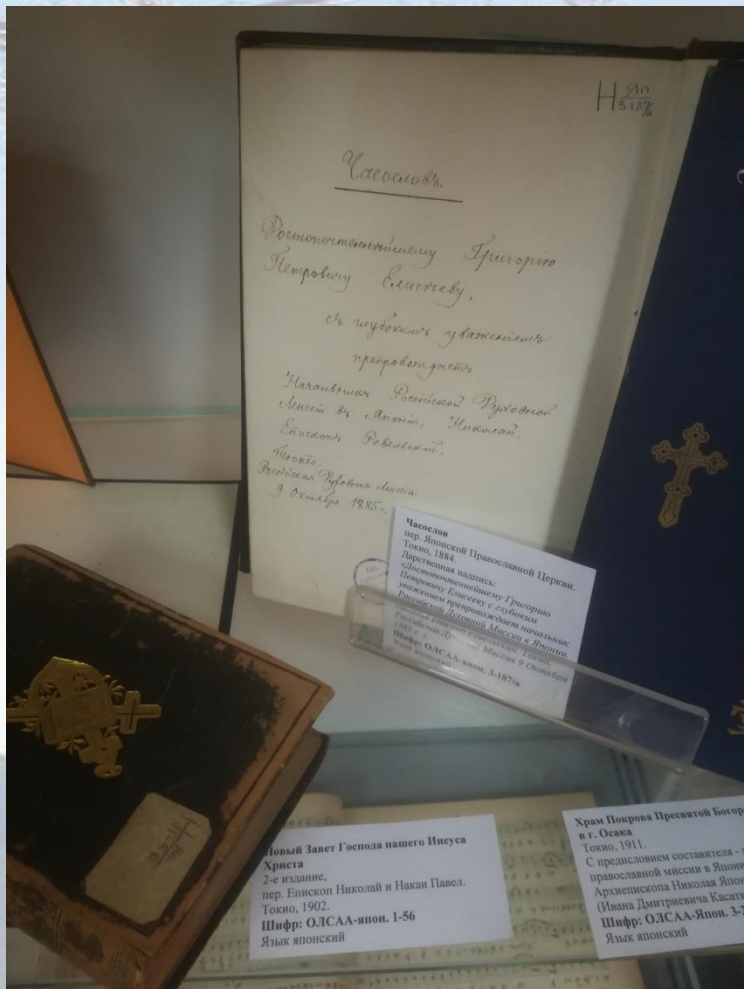 Н Яп
3-187/а
Часословъ.
Достопочтеннѣйшему Григорію
Петровичу Елисѣеву,
съ глубокимъ уваженіемъ
препровождаетъ
Начальникъ Россійской Духовной
Миссіи въ Японіи, Николай,
Епископъ Ревельскій.
Тоокёо.
Россійская Духовная Миссія.
9 Октября 1885 г.
Часослов
пер. Японской Православной Церкви.
Токио, 1884.
Дарственная надпись:
«Достопочтеннейшему Григорию
Петровичу Елисееву с глубоким
уважением препровождает начальник
Российской Духовной Миссии в Японии,
Токио.
Российская Духовная Миссия 9 Октября
1885 г.».
Шифр: ОЛСАА-япон. 3-187/а
Язык японский
Новый Завет Господа нашего Иисуса
Христа
2-е издание,
пер. Епископ Николай и Накаи Павел.
Токио, 1902.
Шифр: ОЛСАА-япон. 1-56
Язык японский
Храм Покрова Пресвятой Богор
в г. Осака
Токио, 1911.
С предисловием составителя -
православной миссии в Японии
Архиепископа Николая Япон
(Ивана Дмитриевича Касат
Шифр: ОЛСАА-Япон. 3-
Язык японский